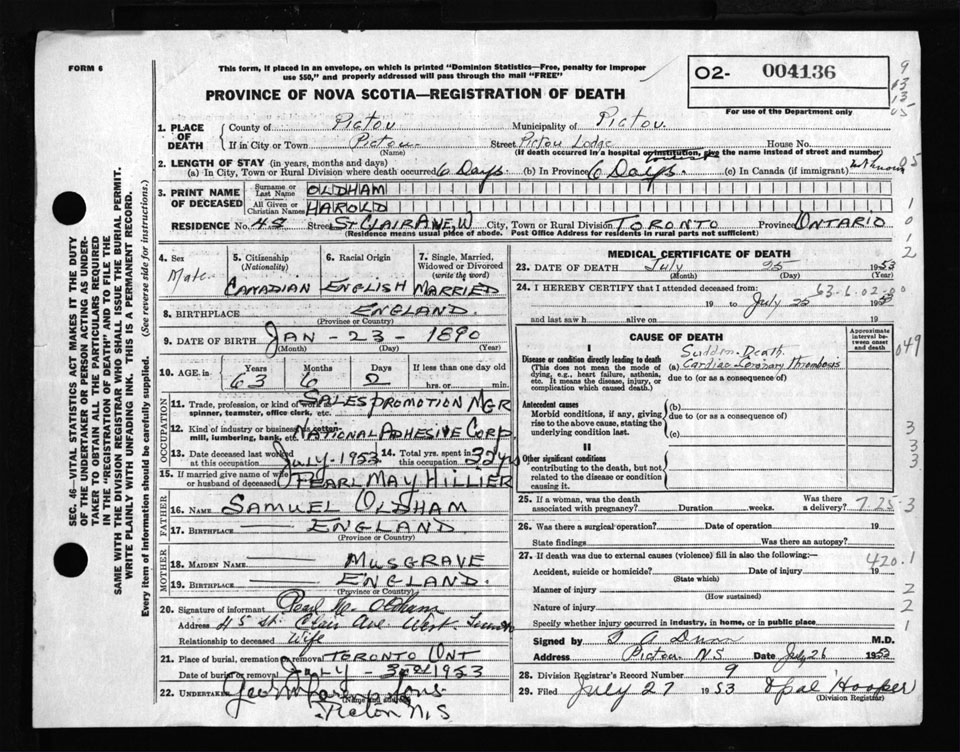 FORM 6
This form, if placed in an envelope, on which is printed "Dominion Statistics—Free, penalty for improper
use $50," and properly addressed will pass through the mail "FREE"
O2- 004136
9
13
13
05
PROVINCE OF NOVA SCOTIA—REGISTRATION OF DEATH
For use of the Department only
SEC. 46—VITAL STATISTICS ACT MAKES IT THE DUTY
OF THE UNDERTAKER OR PERSON ACTING AS UNDER-
TAKER TO OBTAIN ALL THE PARTICULARS REQUIRED
IN THE "REGISTRATION OF DEATH" AND TO FILE THE
SAME WITH THE DIVISION REGISTRAR WHO SHALL ISSUE THE BURIAL PERMIT.
WRITE PLAINLY WITH UNFADING INK. THIS IS A PERMANENT RECORD.
Every item of information should be carefully supplied. (See reverse side for instructions.)
1. PLACE OF DEATH
County of Pictou Municipality of Pictou.
If in City or Town Pictou Street Pictou Lodge House No.
(Name) (If death occurred in a hospital or institution, give the name instead of street and number)
2. LENGTH OF STAY (in years, months and days)
(a) In City, Town or Rural Division where death occurred 6 Days. (b) In Province 6 Days. (c) In Canada (if immigrant) Unknown
05
3. PRINT NAME OF DECEASED
Surname or Last Name OLDHAM
All Given or Christian Names HAROLD
1
0
1
2
RESIDENCE No. 45 Street ST CLAIR AVE, W City, Town or Rural Division TORONTO Province ONTARIO
(Residence means usual place of abode. Post Office Address for residents in rural parts not sufficient)
4. Sex Male
5. Citizenship (Nationality) CANADIAN
6. Racial Origin ENGLISH
7. Single, Married, Widowed or Divorced (write the word) MARRIED
8. BIRTHPLACE ENGLAND.
(Province or Country)
9. DATE OF BIRTH JAN - 23 - 1890
(Month) (Day) (Year)
10. AGE in Years 63 Months 6 Days 2 If less than one day old
hrs. or min.
OCCUPATION
11. Trade, profession, or kind of work as
spinner, teamster, office clerk, etc. SALES PROMOTION MGR
12. Kind of industry or business as cotton-
mill, lumbering, bank, etc. NATIONAL ADHESIVE CORP.
13. Date deceased last worked at this occupation July-1953
14. Total yrs. spent in this occupation 32 yrs
15. If married give name of wife
or husband of deceased PEARL MAY HILLIER
FATHER
16. NAME SAMUEL OLDHAM
17. BIRTHPLACE ENGLAND
(Province or Country)
MOTHER
18. MAIDEN NAME MUSGRAVE
19. BIRTHPLACE ENGLAND.
(Province or Country)
20. Signature of informant Pearl M. Oldham
Address 45 St. Clair Ave West. Toronto
Relationship to deceased Wife
21. Place of burial, cremation or removal TORONTO ONT
Date of burial or removal July 1953
22. UNDERTAKER Sons
(Name and address)
Pictou N.S
MEDICAL CERTIFICATE OF DEATH
23. DATE OF DEATH July 25 1953
(Month) (Day) (Year)
24. I HEREBY CERTIFY that I attended deceased from:
63-6.02-00
19 to July 25 1953
and last saw h alive on 19
CAUSE OF DEATH
Approximate interval between onset and death
049
I
Disease or condition directly leading to death
(This does not mean the mode of
dying, e.g., heart failure, asthenia,
etc. It means the disease, injury, or
complication which caused death.)
Sudden Death.
(a) Cardiac-Coronary Thrombosis
due to (or as a consequence of)
Antecedent causes
Morbid conditions, if any, giving
rise to the above cause, stating the
underlying condition last.
(b)
due to (or as a consequence of)
(c)
3
3
3
II
Other significant conditions
contributing to the death, but not
related to the disease or condition
causing it.
25. If a woman, was the death associated with pregnancy? Duration weeks. Was there a delivery?
7.25-3
26. Was there a surgical operation? Date of operation 19
State findings Was there an autopsy?
27. If death was due to external causes (violence) fill in also the following:—
420.1
Accident, suicide or homicide? Date of injury 19
(State which)
Manner of injury
2
(How sustained)
Nature of injury
2
Specify whether injury occurred in industry, in home, or in public place
1
Signed by A Dunn M.D.
Address Pictou NS Date July 26 1953
28. Division Registrar's Record Number 9
29. Filed July 27 1953 Opal Hooper
(Division Registrar)